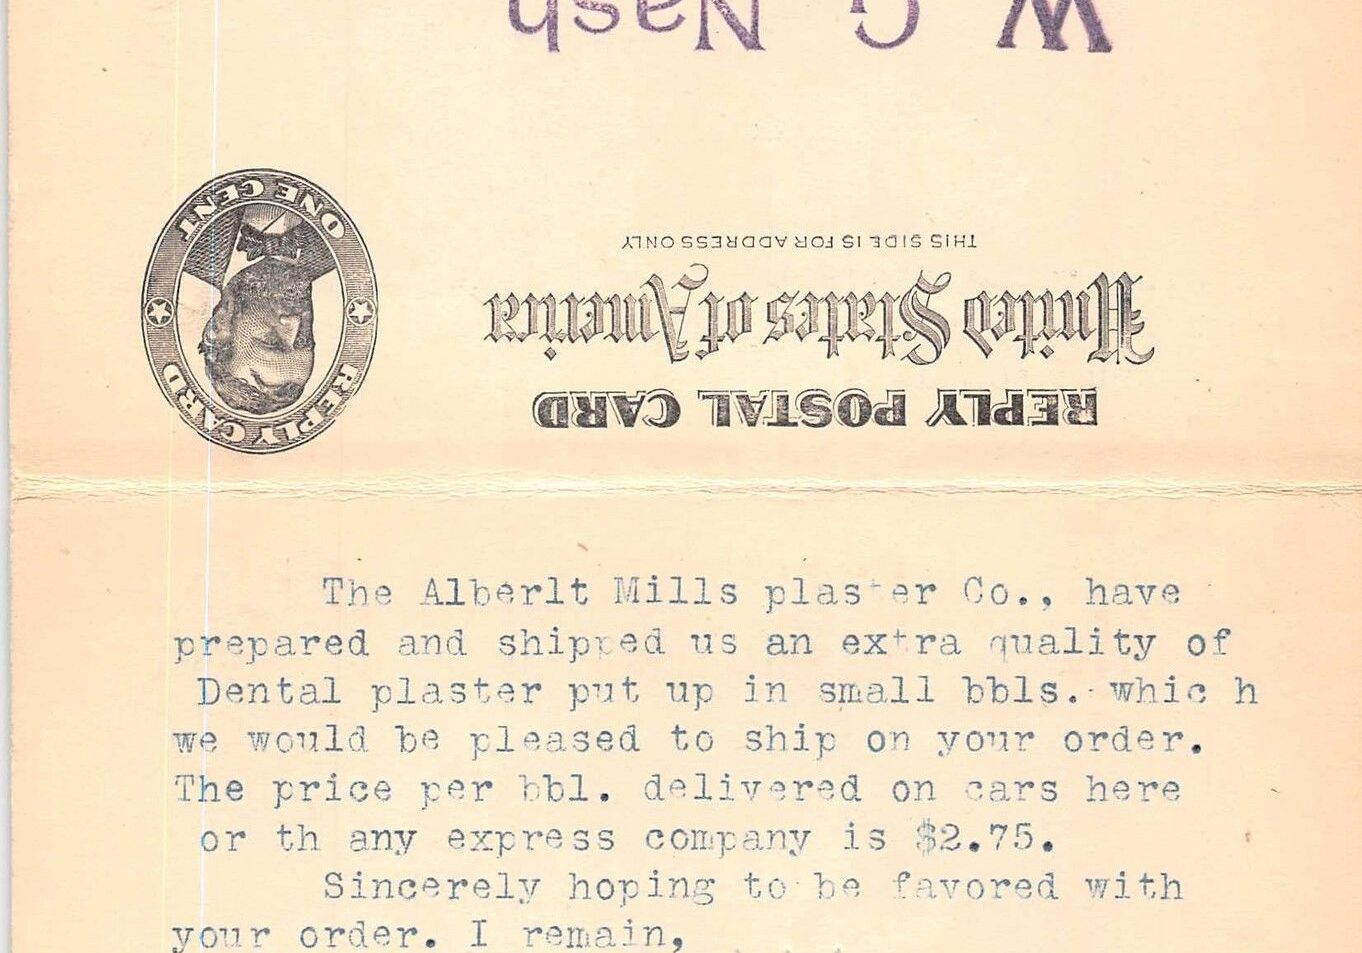 W G Nash
THIS SIDE IS FOR ADDRESS ONLY
United States of America
REPLY POSTAL CARD
REPLY CARD
ONE CENT
The Alberlt Mills plaster Co., have
prepared and shipped us an extra quality of
Dental plaster put up in small bbls. whic h
we would be pleased to ship on your order.
The price per bbl. delivered on cars here
or th any express company is $2.75.
Sincerely hoping to be favored with
your order. I remain,